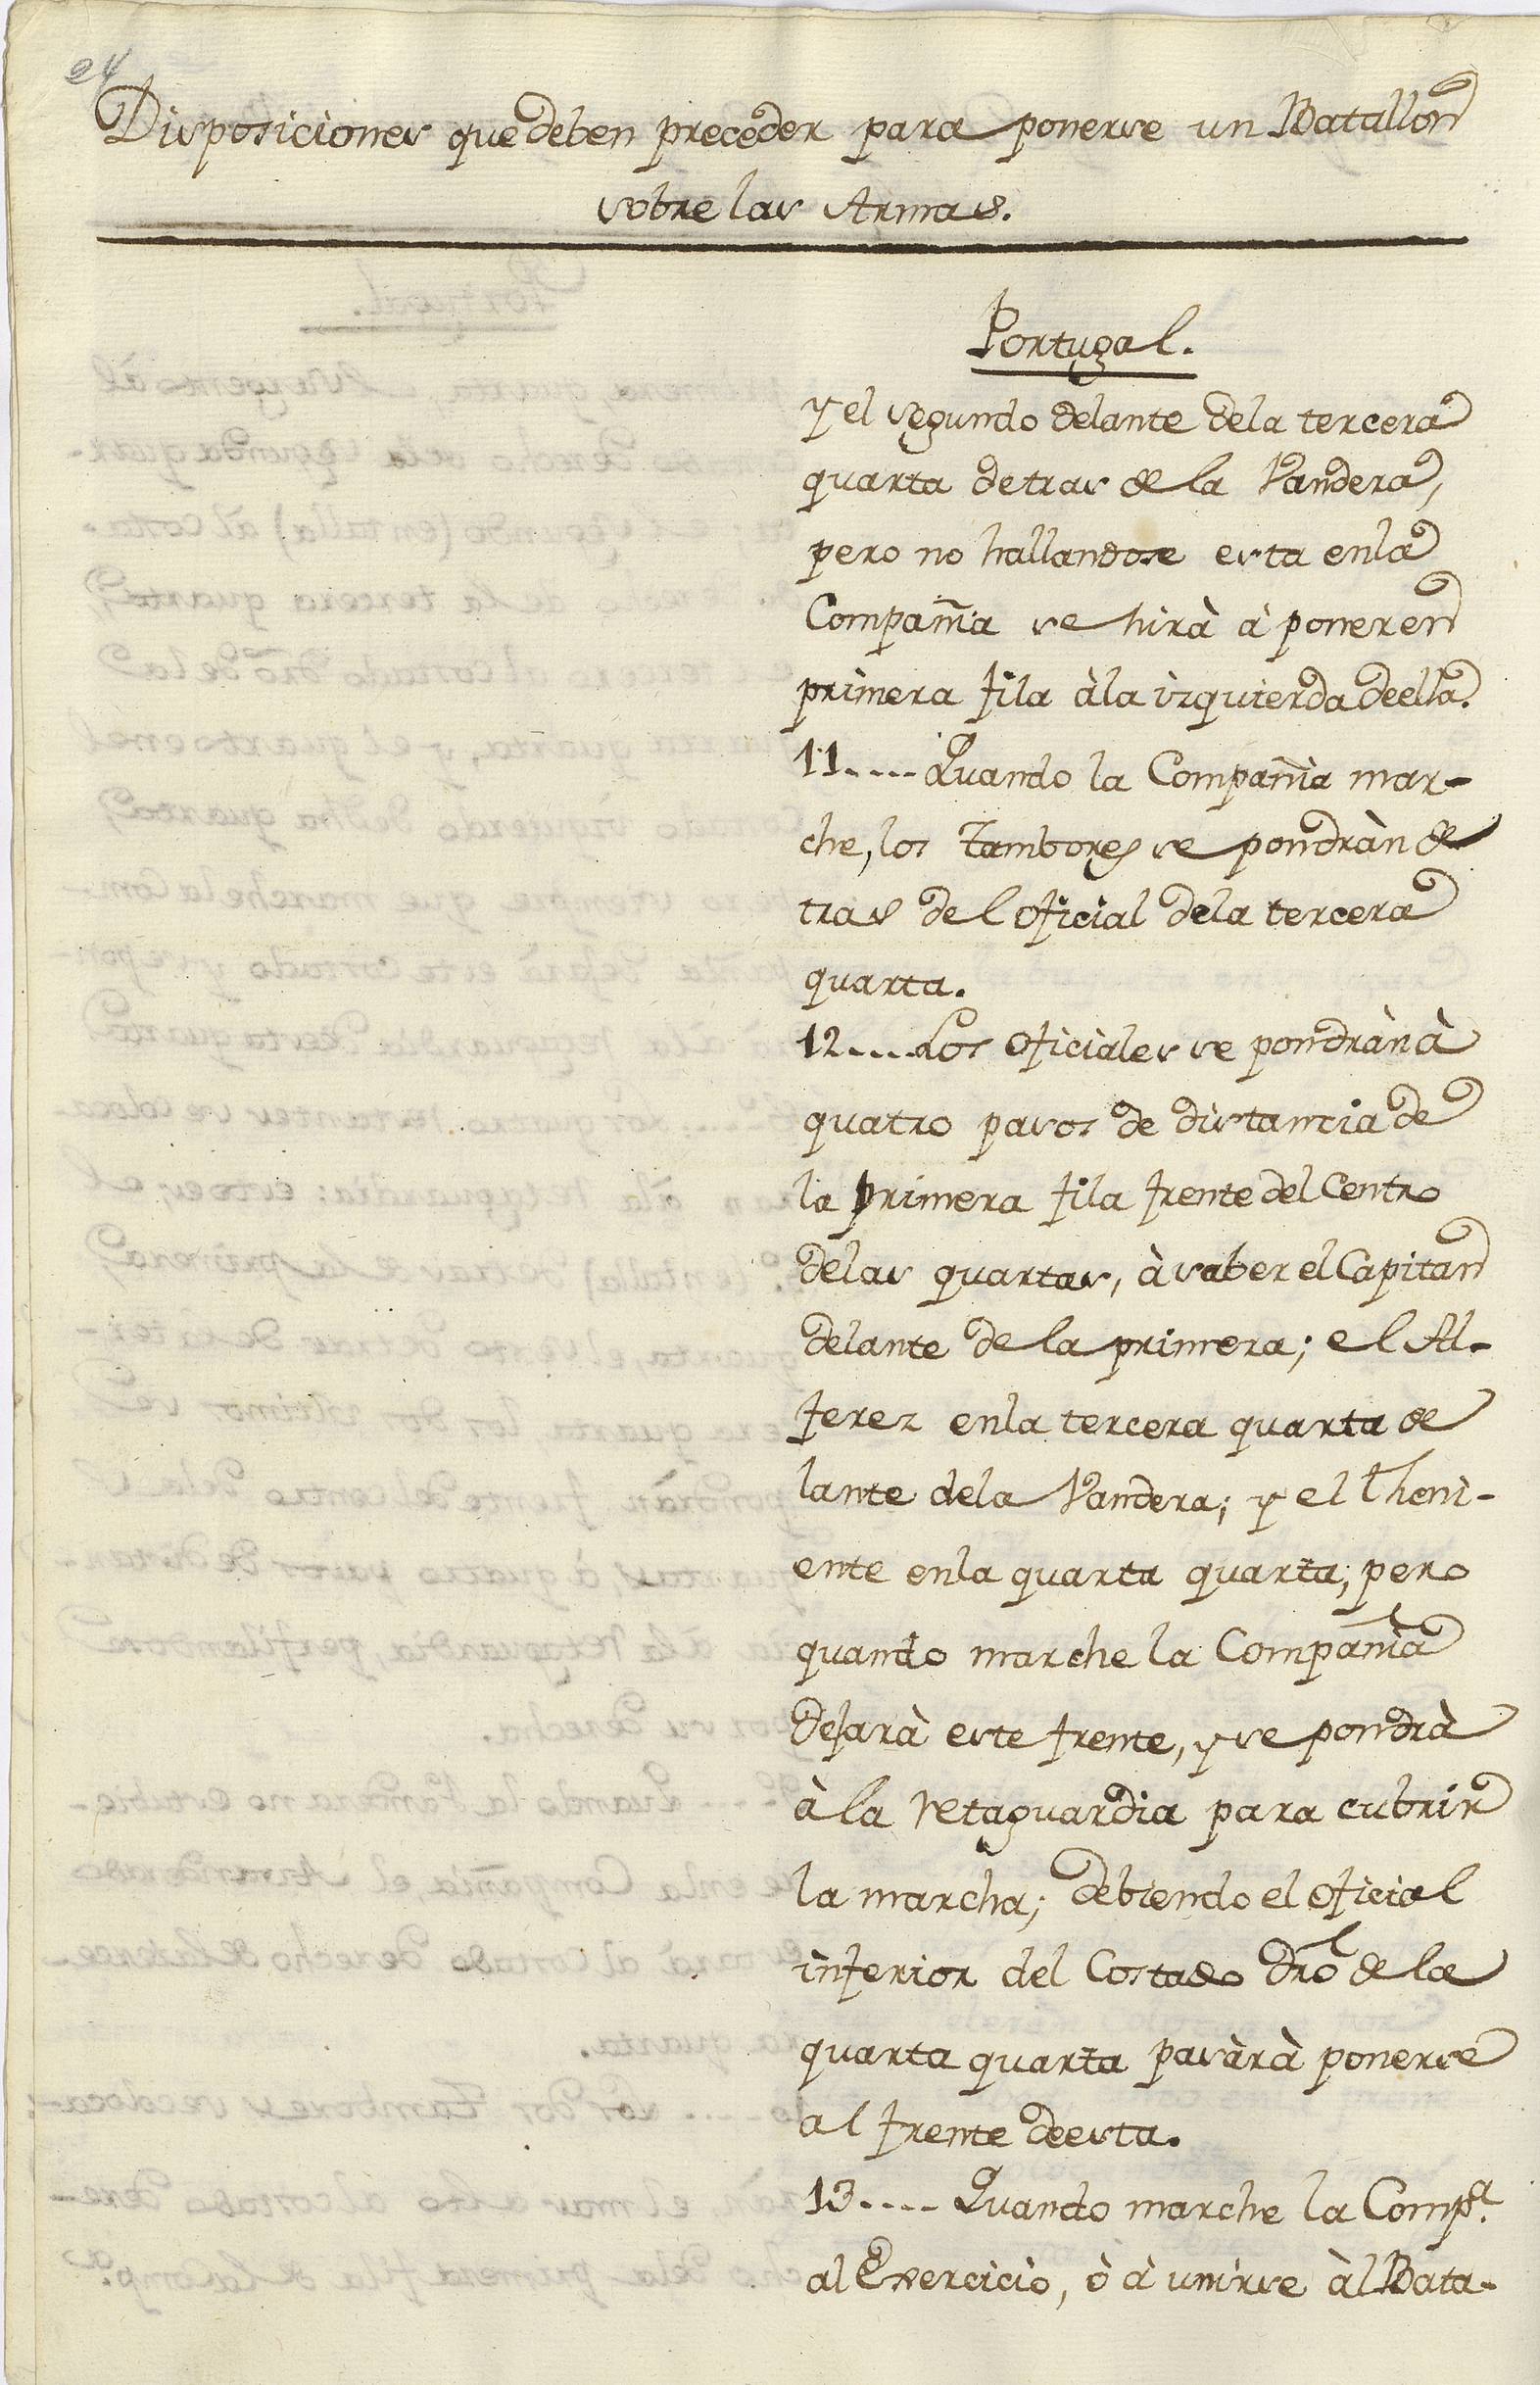 24
Disposiciones que deben preceder para ponerse un Batallon
sobre las Armas.
Portugal.
y el segundo delante dela tercera
quarta detras de la Vandera,
pero no hallandose esta enla
Compañia se hirà à poner en
primera fila àla izquierda deella.
11.... Quando la Compañia mar-
che, los Tambores se pondràn de
tras del oficial dela tercera
quarta.
12.... Los oficiales se pondràn à
quatro pasos de distancia de
la primera fila frente del Centro
delas quartas, à saber el Capitan
delante de la primera; el Al-
ferez enla tercera quarta de
lante dela Vandera; y el theni-
ente enla quarta quarta; pero
quando marche la Compañia
dejarà este frente, y se pondrà
à la retaguardia para cubrir
la marcha; debiendo el oficial
inferior del Costado dro de la
quarta quarta pasàrà ponerse
al frente deesta.
13.... Quando marche la Compª.
al Exercicio, ò à unirse àl Bata-